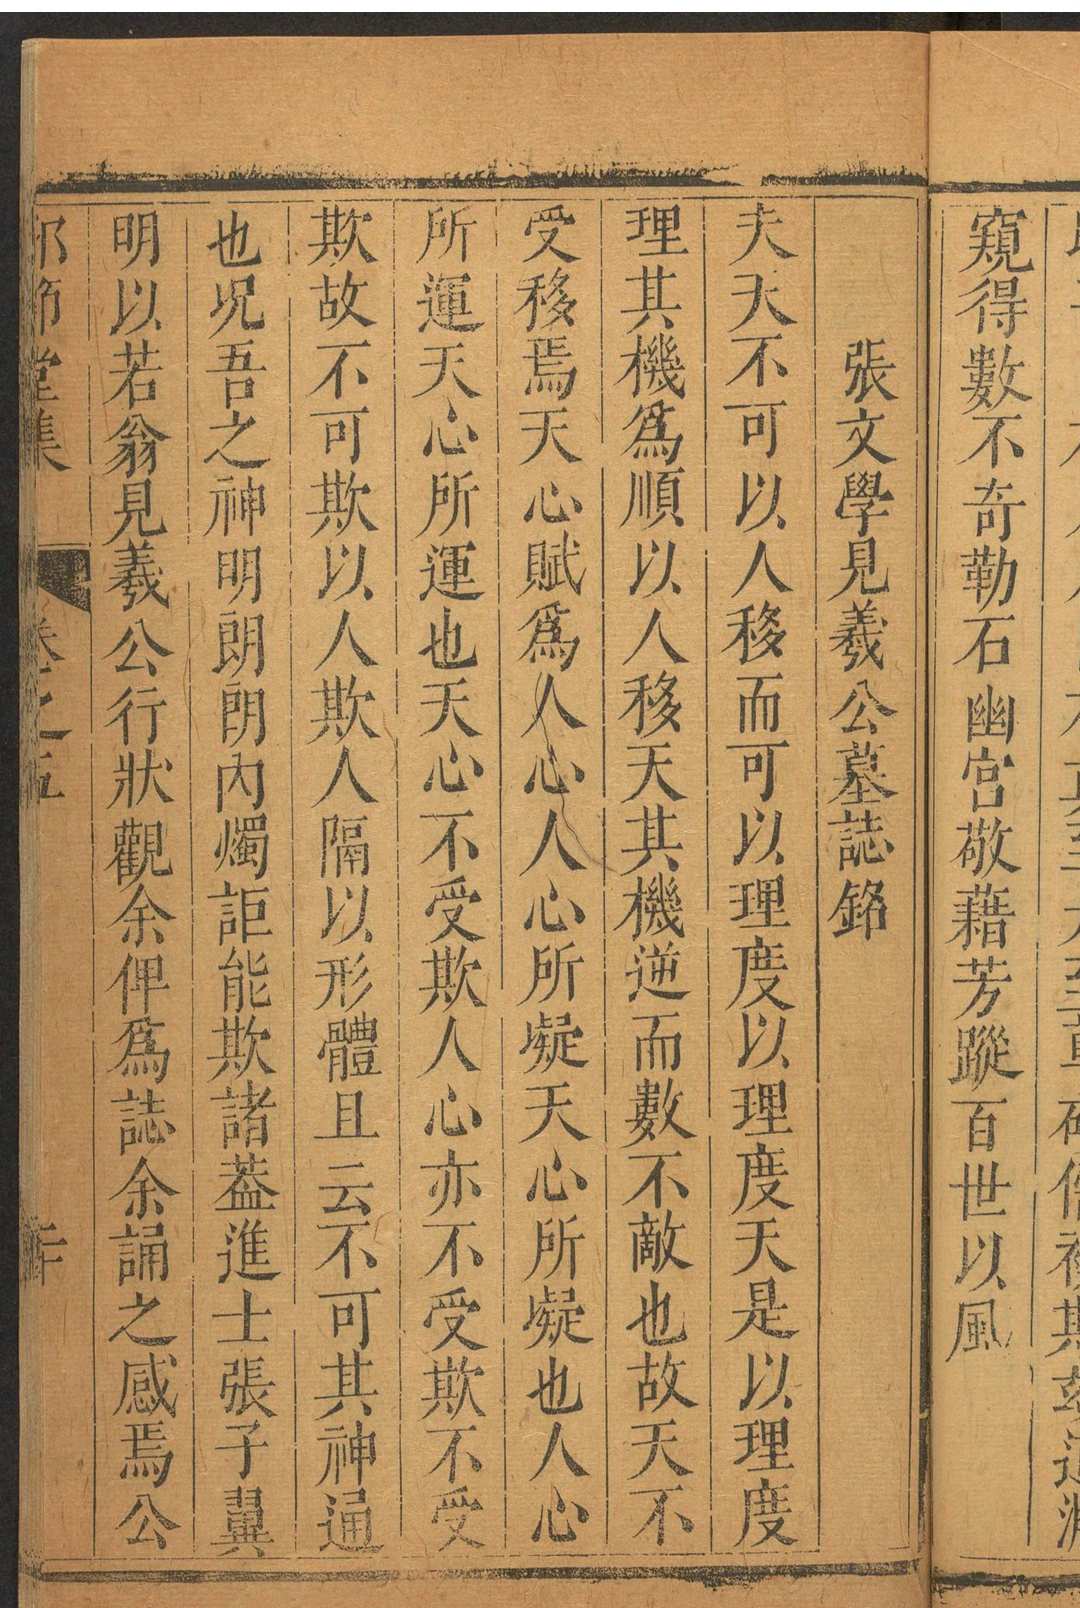 窺得數不奇勒石幽宮敬藉芳蹤百世以風
張文學見羲公墓誌銘
夫天不可以人移而可以理度以理度天是以理度
理其機為順以人移天其機逆而數不敵也故天不
受移焉天心賦為人心人心所凝天心所凝也人心
所運天心所運也天心不受欺人心亦不受欺不受
欺故不可欺以人欺人隔以形體且云不可其神通
也況吾之神明朗朗內燭詎能欺諸葢進士張子翼
明以若翁見羲公行狀觀余俾為誌余誦之感焉公
節堂集 卷之五